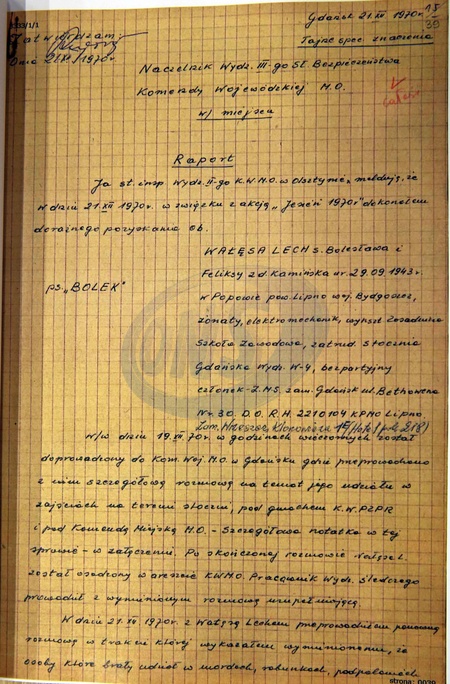 Gdańsk 21.XII 1970r.
15
35
Zatwierdzam:
Tajne spec. znaczenia
Dnia 21.XII 1970r
Naczelnik Wydz. III-go Sł. Bezpieczeństwa
Komendy Wojewódzkiej M.O.
w/ miejscu
Raport
Ja st. insp. Wydz. II-go K.W.M.O. w Olsztynie, melduję, że
w dniu 21.XII 1970r. w związku z akcją „Jesień 1970r" dokonałem
doraźnego pozyskania ob.
WAŁĘSA LECH s. Bolesława i
Feliksy z d. Kamińska ur. 29.09.1943r.
ps. „BOLEK"
w Popowie pow. Lipno woj. Bydgoszcz,
żonaty, elektromechanik, wykszt. Zasadnicza
Szkoła Zawodowa, zatrud. Stocznia
Gdańska Wydz. W-4, bezpartyjny
członek Z.M.S. zam. Gdańsk ul. Bethowena
Nr. 30. D.O. R.H. 2210104 KPMO Lipno.
Zam. Wrzeszcz, Klonowicza
W/w w dniu 19.XII.70r. w godzinach wieczornych został
doprowadzony do Kom. Woj. M.O. w Gdańsku gdzie przeprowadzono
z nim szczegółową rozmowę na temat jego udziału w
zajściach na terenie stoczni, pod gmachem K.W.PZPR
i pod Komendą Miejską M.O. - Szczegółowa notatka w tej
sprawie - w załączeniu. Po skończonej rozmowie Wałęsa L.
został osadzony w areszcie KWMO. Pracownik Wydz. Śledczego
prowadził z wymienionym rozmowę uzupełniającą.
W dniu 21.XII 1970r z Wałęsą Lechem przeprowadziłem ponowną
rozmowę w trakcie której wykazałem wymienionemu, że
osoby które brały udział w mordach, rabunkach, podpaleniach
strona: